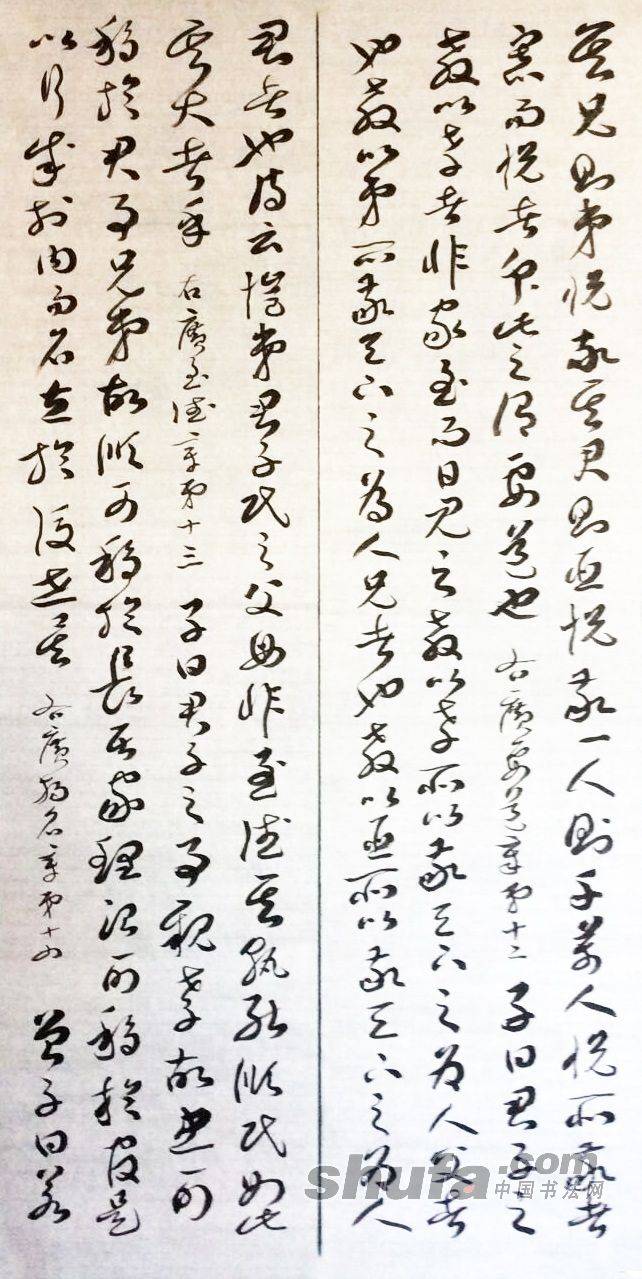 其兄則弟悅敬其君則臣悅敬一人則千萬人悅所敬者
寡而悅者眾此之謂要道也 右廣要道章第十二 子曰君子之
教以孝者非家至而日見之教以孝所以敬天下之為人父者
也教以弟所以敬天下之為人兄者也教以臣所以敬天下之為人
君者也詩云愷弟君子民之父母非至德其孰能順民如此
其大者乎 右廣至德章第十三 子曰君子之事親孝故忠可
移於君事兄弟故順可移於長居家理治可移於官是
以行成於內而名立於後世矣 右廣揚名章第十四 曾子曰若
shufa.com
中国书法网